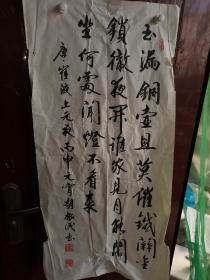 玉漏銅壺且莫催鐵關金
鎖徹夜開誰家見月能閑
坐何處聞燈不看來
唐崔液上元夜丙申元宵胡振民書